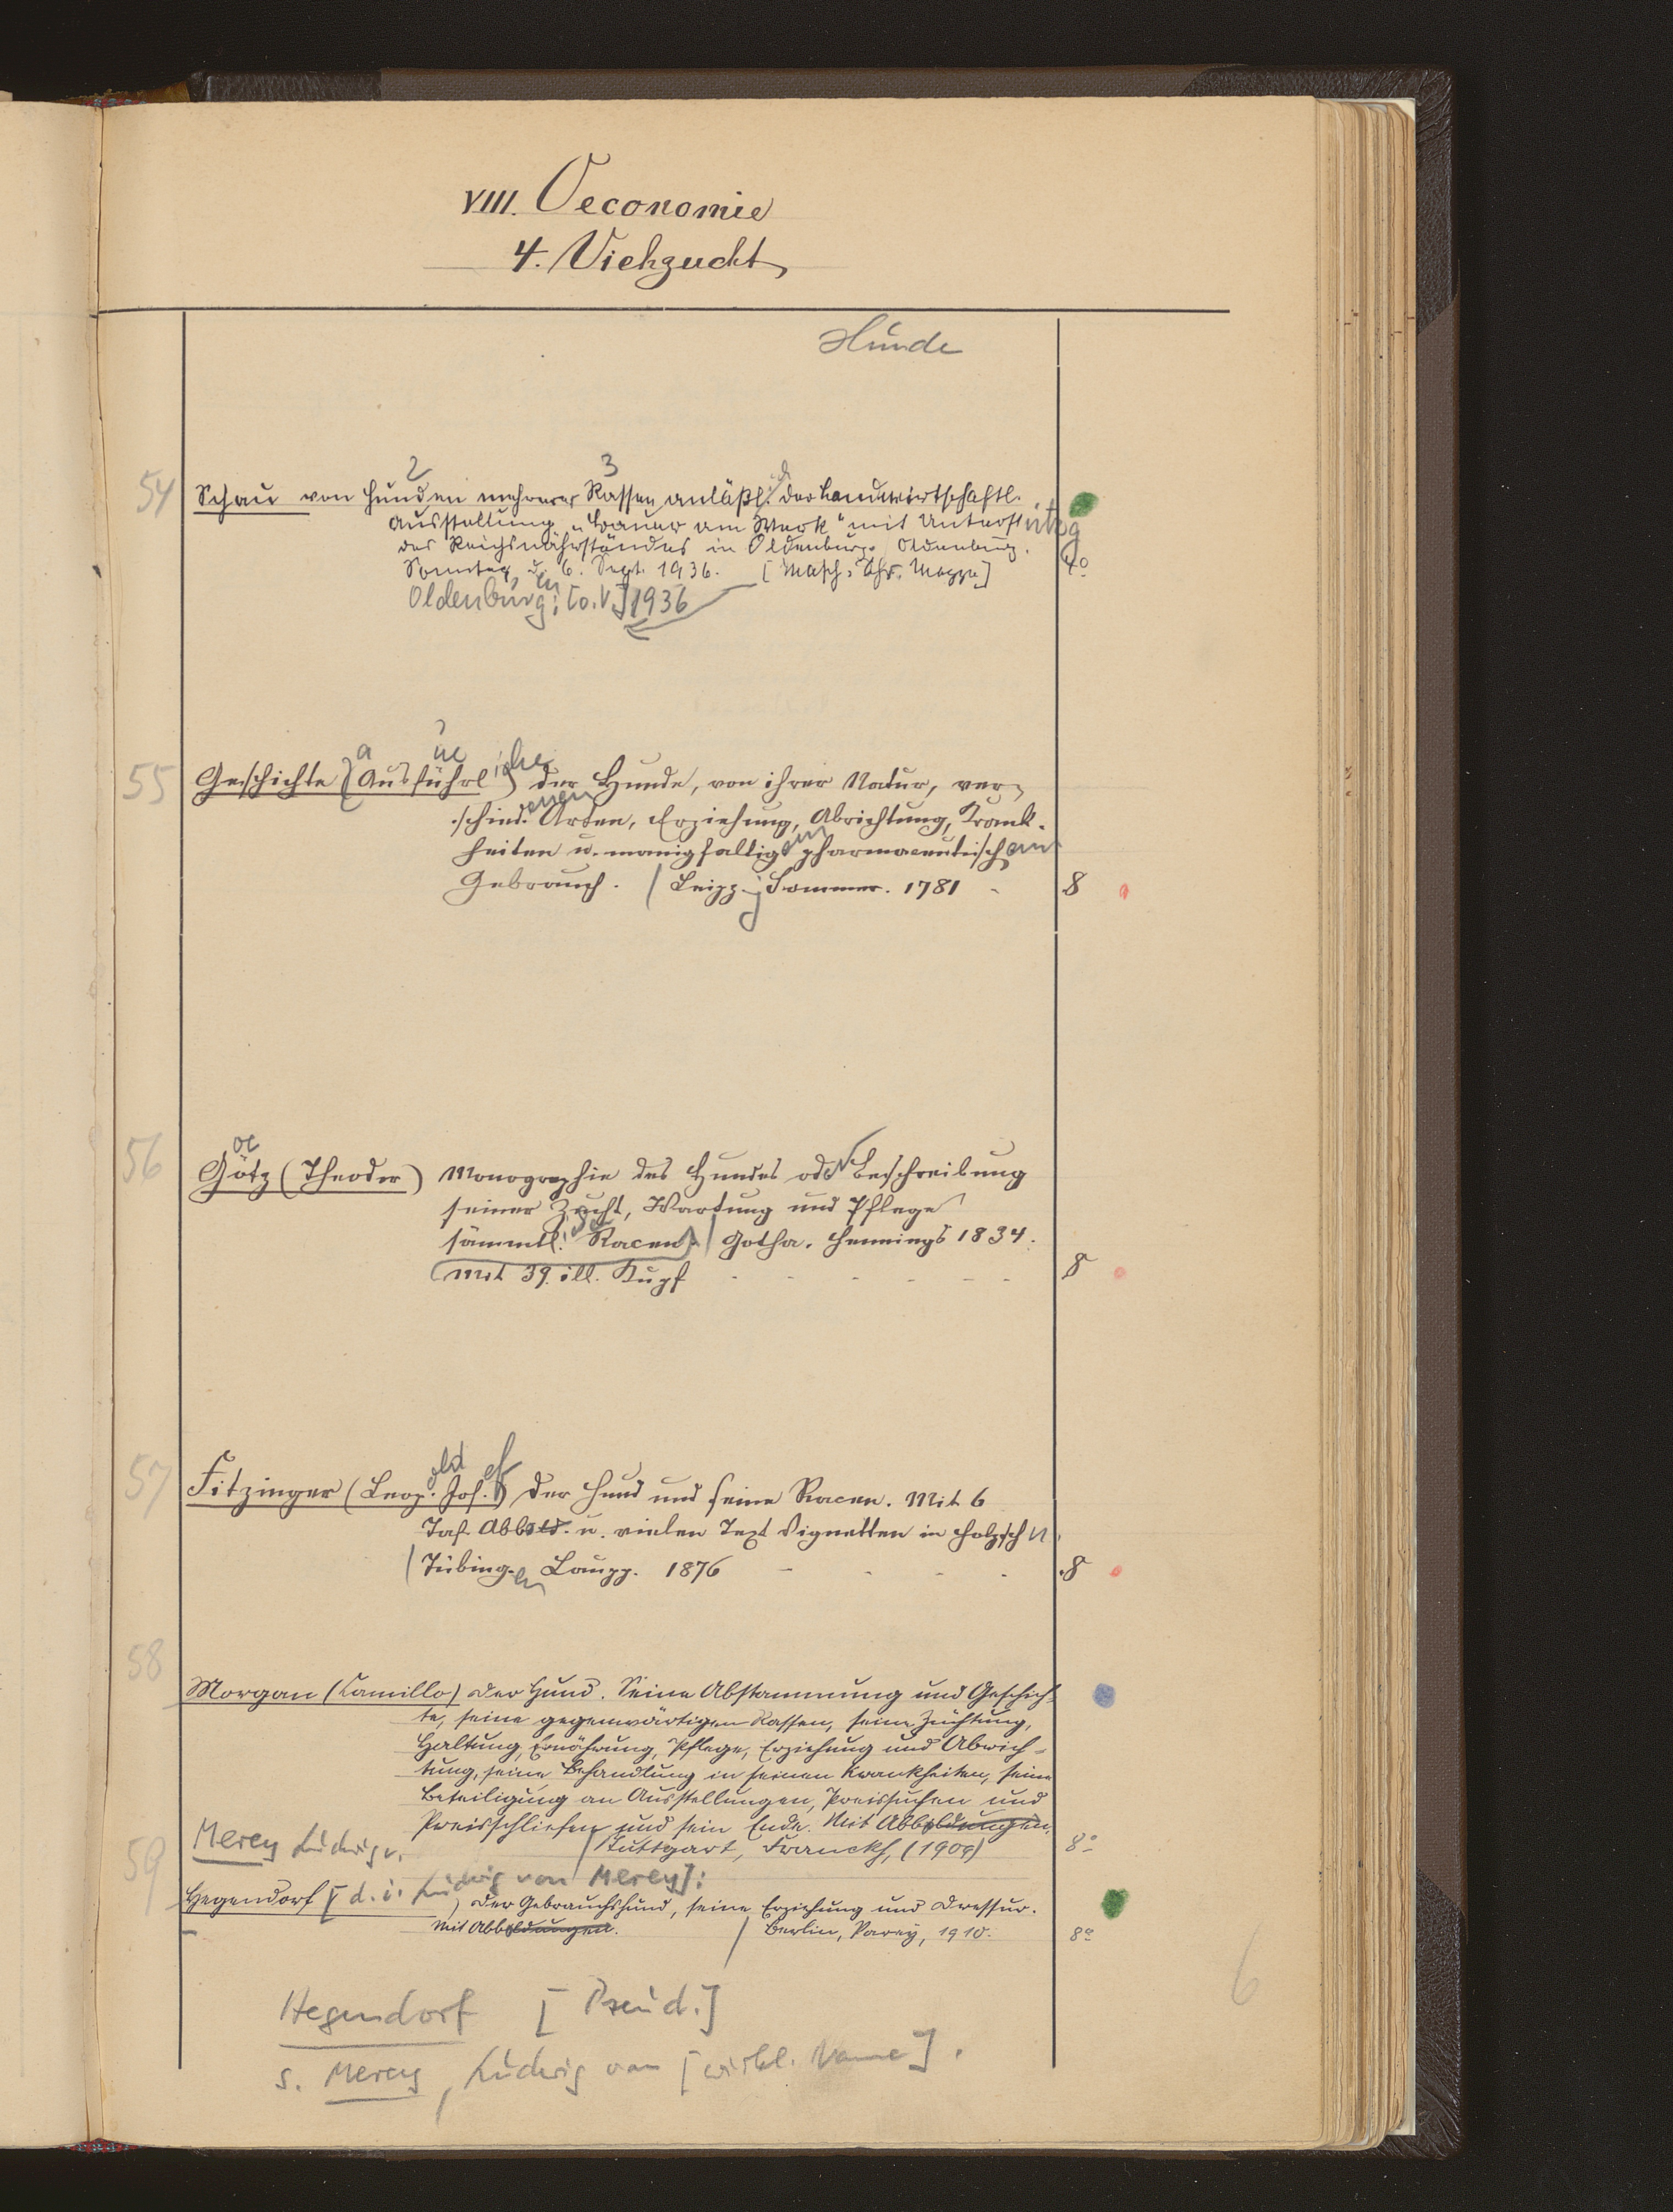 VIII. Oeconomie
4. Viehzucht
Hunde
2 3
54 Schau von Hunden mehrerer Rassen anläßl. d. der Landwirtschaftl.
Ausstellung „Bauer am Werk“ mit Unterstützg
des Reichsnährstandes in Oldenburg. Oldenburg.
Sonntag, d. 6. Sept. 1936. [Masch. Schr. Mappe] 4o
Oldenburg: [o.V.] 1936
55 Geschichte (Ausführliche) der Hunde, von ihrer Natur, ver-
schiedenen Arten, Erziehung, Abrichtung, Krank-
heiten u. manigfaltigen pharmaceutischen
Gebrauch. / Leipzig Sommer. 1781 - 8
oe
56 Götz (Theodor) Monographie des Hundes oder Beschreibung
seiner Zucht, Wartung und Pflege
sämmtl. Racen. / Gotha. Hennings 1834.
Mit 39 ill. Kupf - - - - - - 8
57 Fitzinger (Leopold Josef) Der Hund und seine Racen. Mit 6
Taf. Abbild. u. vielen Text Vignetten in Holzschn.
/ Tübingen Laupp. 1876 - - - - 8
58
Morgan (Camillo) Der Hund. Seine Abstammung und Geschich-
te, seine gegenwärtigen Rassen, seine Züchtung,
Haltung, Ernährung, Pflege, Erziehung und Abrich-
tung, seine Behandlung in seinen Krankheiten, seine
Beteiligung an Ausstellungen, Preissuchen und
Preisschliefen und sein Ende. Mit Abbildungen.
/ Stuttgart, Franckh, (1909) 8o
59 Merey Ludwig v.
Hegendorf [d. i. Ludwig von Merey]:
) Der Gebrauchshund, seine Erziehung und Dressur.
Mit Abbildungen. / Berlin, Parey, 1910. 8o
6
Hegendorf [Pseud.]
s. Merey, Ludwig von [wirkl. Name].